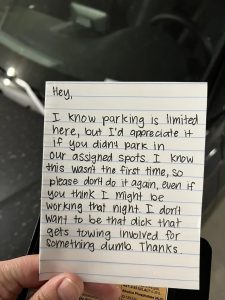 Hey,
I know parking is limited
here, but I'd appreciate it
if you didn't park in
our assigned spots. I know
this wasn't the first time, so
please don't do it again, even if
you think I might be
working that night. I don't
want to be that dick that
gets towing involved for
something dumb. Thanks